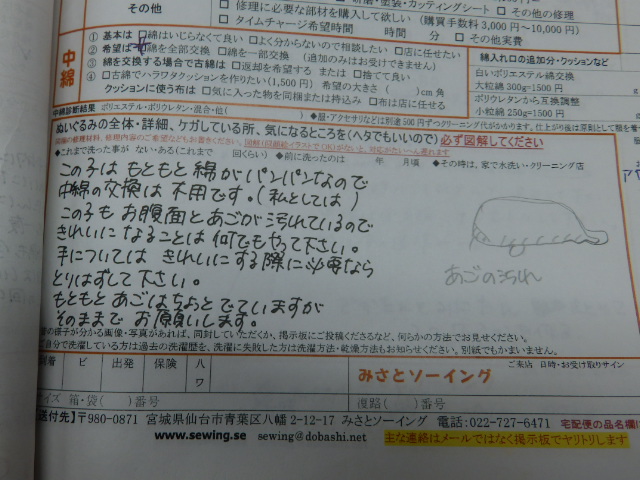 その他
□ 修理に必要な部材を購入して欲しい (購買手数料 3,000円～10,000円)
□ タイムチャージ希望時間　時間　分 □ その他実費
中綿
① 基本は □綿はいじらなくて良い □よく分からないので相談したい □店に任せたい
② 希望は □綿を全部交換 □綿を一部交換 (追加のみはお受けできません)
③ 綿を交換する場合で古綿は □返却を希望する または □捨てて良い
④ □古綿でハラワタクッションを作りたい(1,500円) 希望の大きさ( )cm角
クッションに使う布は □気に入った物を同梱または持込み □布は店に任せる
綿入れ口の追加分・クッションなど
白いポリエステル綿交換
大粒綿 300g=1500円
ポリウレタンから互換調整
小粒綿 250g=1500円
中綿診断結果 ポリエステル・ポリウレタン・混合・他(
ぬいぐるみの全体・詳細、ケガしている所、気になるところを(ヘタでもいいので)必ず図解してください
◆これまで洗った事が ない・ある(これまで 回くらい) ◆前に洗ったのは 年 月頃 ◆その時は、家で水洗い・クリーニング店
この子は もともと 綿が パンパンなので
中綿の交換は 不用です。(私としては)
この子も お腹面と あごが 汚れているので
きれいに なることは 何でもやって下さい。
手については きれいに する際に 必要なら
とりはずして 下さい。
もともと あごは ちょっと でていますが
そのままで お願いします。
あごの汚れ
の様子が分かる画像・写真があれば、同封していただくか、掲示板にご投稿くださるなど、何らかの方法でお見せください。
ご自分で洗濯している方は過去の洗濯歴を、洗濯に失敗した方は洗濯方法・乾燥方法もお知らせください。別紙でもかまいません。
ビ
出発
保険
ハワ
みさとソーイング
ご来店 日時・お受け取りサイン
イズ 箱・袋( )番号
復路( )番号
送付先】〒980-0871 宮城県仙台市青葉区八幡 2-12-17 みさとソーイング 電話:022-727-6471 宅配便の品名欄に
www.sewing.se sewing@dobashi.net 主な連絡はメールではなく掲示板でヤリトリします